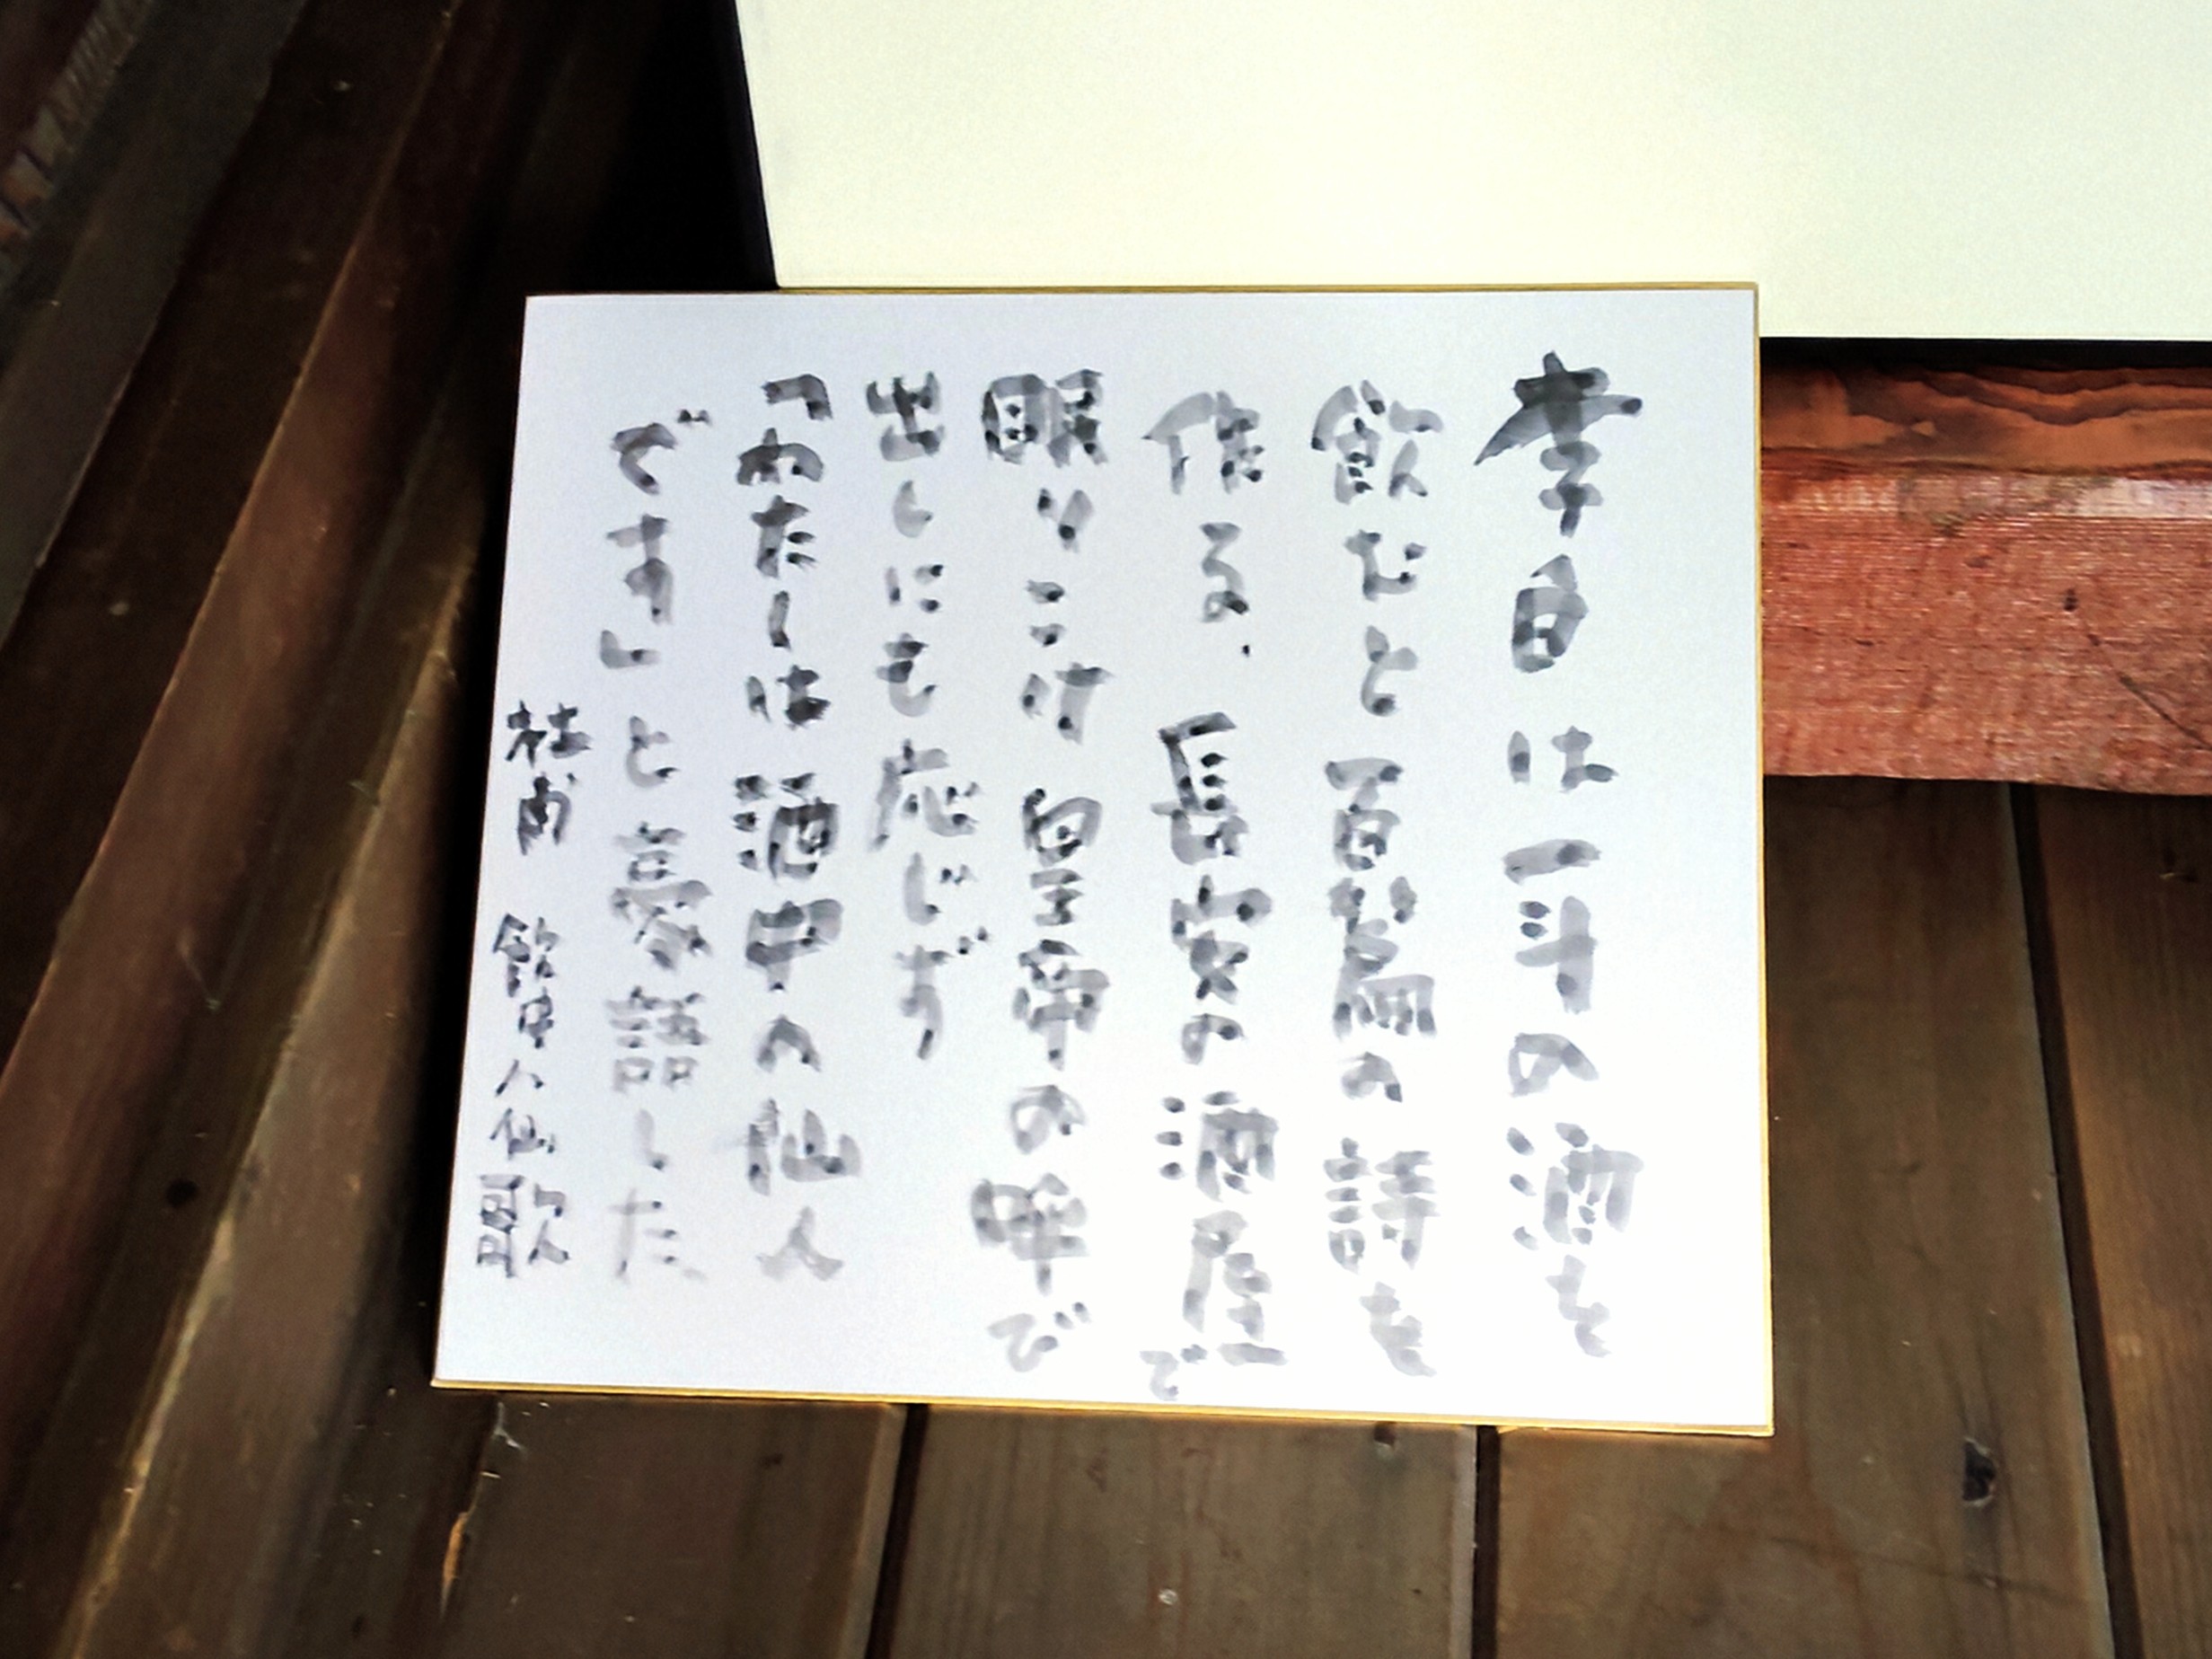 李白は一斗の酒を
飲むと百篇の詩を
作る、長安の酒屋で
眠りこけ皇帝の呼び
出しにも応じず
「わたしは酒中の仙人
です」と豪語した
杜甫 飲中八仙歌